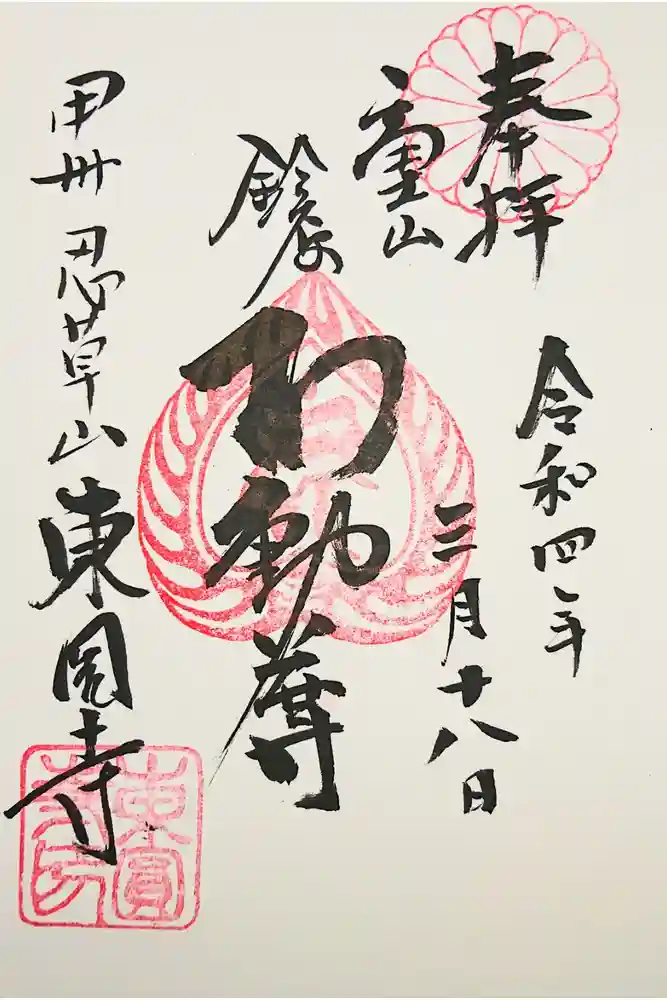 奉拝
令和四年
三月十八日
不動尊
甲州 忍草山 東圓寺
東圓
寺印